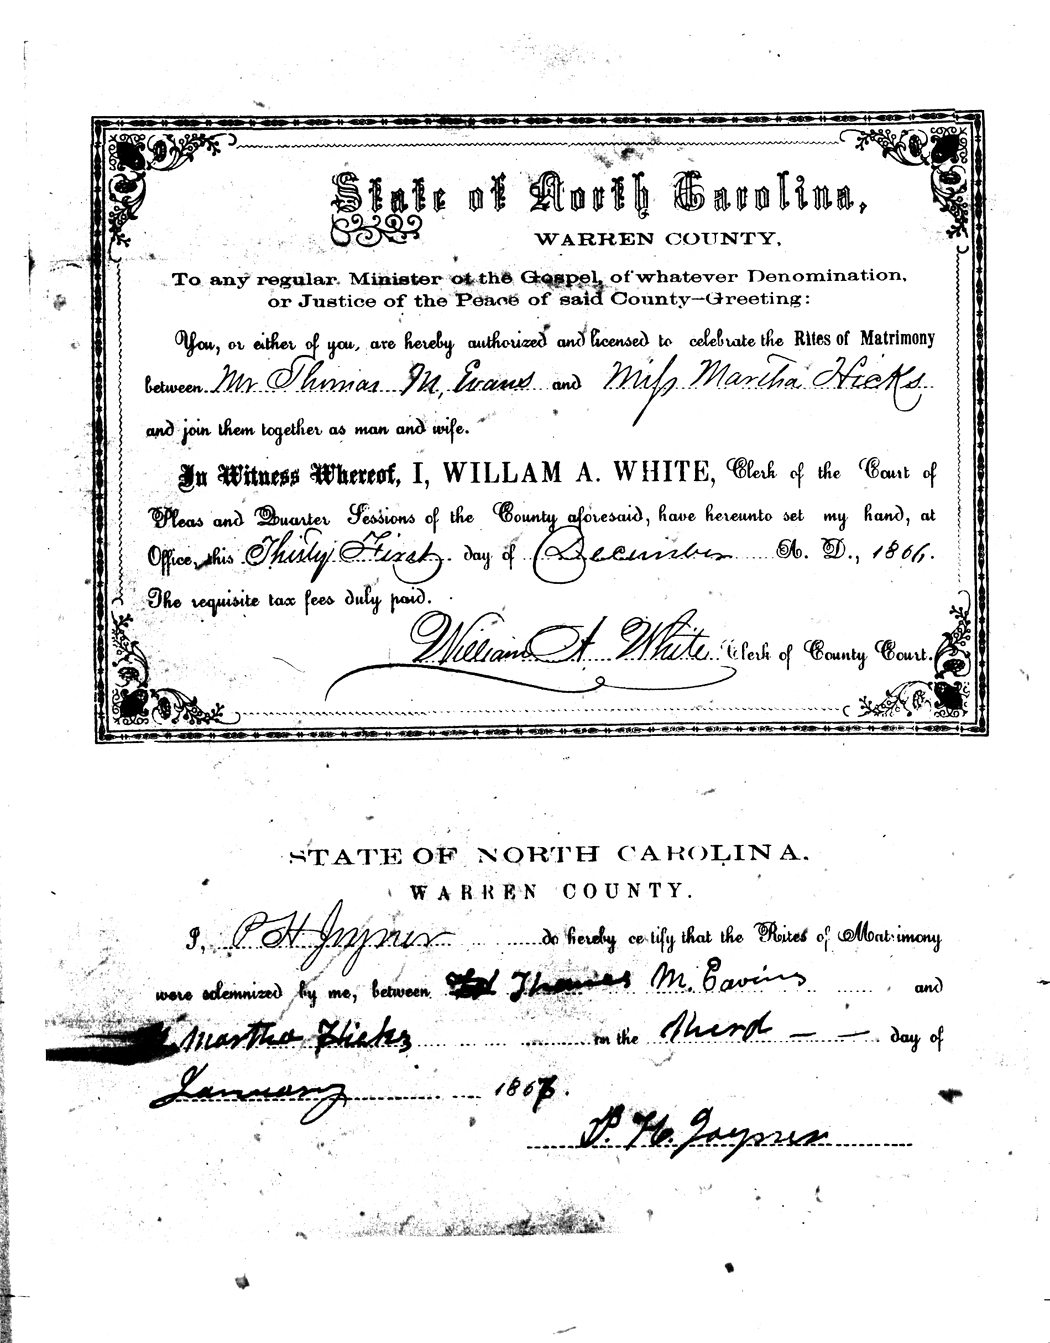 State of North Carolina,
WARREN COUNTY.
To any regular Minister of the Gospel, of whatever Denomination,
or Justice of the Peace of said County—Greeting:
You, or either of you, are hereby authorized and licensed to celebrate the Rites of Matrimony
between Mr Thomas M, Evans and Miss Martha Hicks
and join them together as man and wife.
In Witness Whereof, I, WILLAM A. WHITE, Clerk of the Court of
Pleas and Quarter Sessions of the County aforesaid, have hereunto set my hand, at
Office, this Thirty First day of December A. D., 1866.
The requisite tax fees duly paid.
William A White Clerk of County Court.
STATE OF NORTH CAROLINA.
WARREN COUNTY.
I, P H Joyner do hereby certify that the Rites of Matrimony
were solemnized by me, between Thomas M. Eavins and
Martha Hicks on the third day of
January 1867.
P. H. Joyner